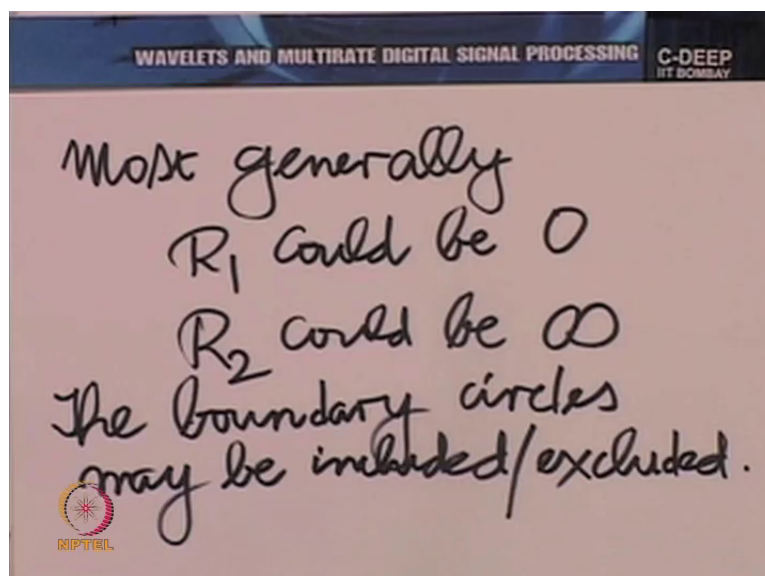 WAVELETS AND MULTIRATE DIGITAL SIGNAL PROCESSING
C-DEEP
IIT BOMBAY
Most generally
R1 could be 0
R2 could be ∞
The boundary circles
may be included/excluded.
NPTEL